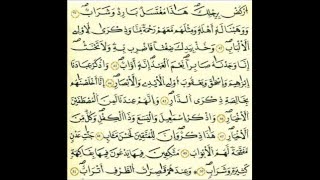 ٱرْكُضْ بِرِجْلِكَ هَٰذَا مُغْتَسَلٌۢ بَارِدٌ وَشَرَابٌ ٤٢
وَوَهَبْنَا لَهُۥٓ أَهْلَهُۥ وَمِثْلَهُم مَّعَهُمْ رَحْمَةً مِّنَّا وَذِكْرَىٰ لِأُو۟لِى
ٱلْأَلْبَٰبِ ٤٣ وَخُذْ بِيَدِكَ ضِغْثًا فَٱضْرِب بِّهِۦ وَلَا تَحْنَثْ
إِنَّا وَجَدْنَٰهُ صَابِرًا نِّعْمَ ٱلْعَبْدُ إِنَّهُۥٓ أَوَّابٌ ٤٤ وَٱذْكُرْ عِبَٰدَنَآ
إِبْرَٰهِيمَ وَإِسْحَٰقَ وَيَعْقُوبَ أُو۟لِى ٱلْأَيْدِى وَٱلْأَبْصَٰرِ ٤٥ إِنَّآ أَخْلَصْنَٰهُم
بِخَالِصَةٍ ذِكْرَى ٱلدَّارِ ٤٦ وَإِنَّهُمْ عِندَنَا لَمِنَ ٱلْمُصْطَفَيْنَ
ٱلْأَخْيَارِ ٤٧ وَٱذْكُرْ إِسْمَٰعِيلَ وَٱلْيَسَعَ وَذَا ٱلْكِفْلِ وَكُلٌّ مِّنَ
ٱلْأَخْيَارِ ٤٨ هَٰذَا ذِكْرٌ وَإِنَّ لِلْمُتَّقِينَ لَحُسْنَ مَـَٔابٍ ٤٩ جَنَّٰتِ عَدْنٍ
مُّفَتَّحَةً لَّهُمُ ٱلْأَبْوَٰبُ ٥٠ مُتَّكِـِٔينَ فِيهَا يَدْعُونَ فِيهَا بِفَٰكِهَةٍ
كَثِيرَةٍ وَشَرَابٍ ٥١ وَعِندَهُمْ قَٰصِرَٰتُ ٱلطَّرْفِ أَتْرَابٌ ٥٢